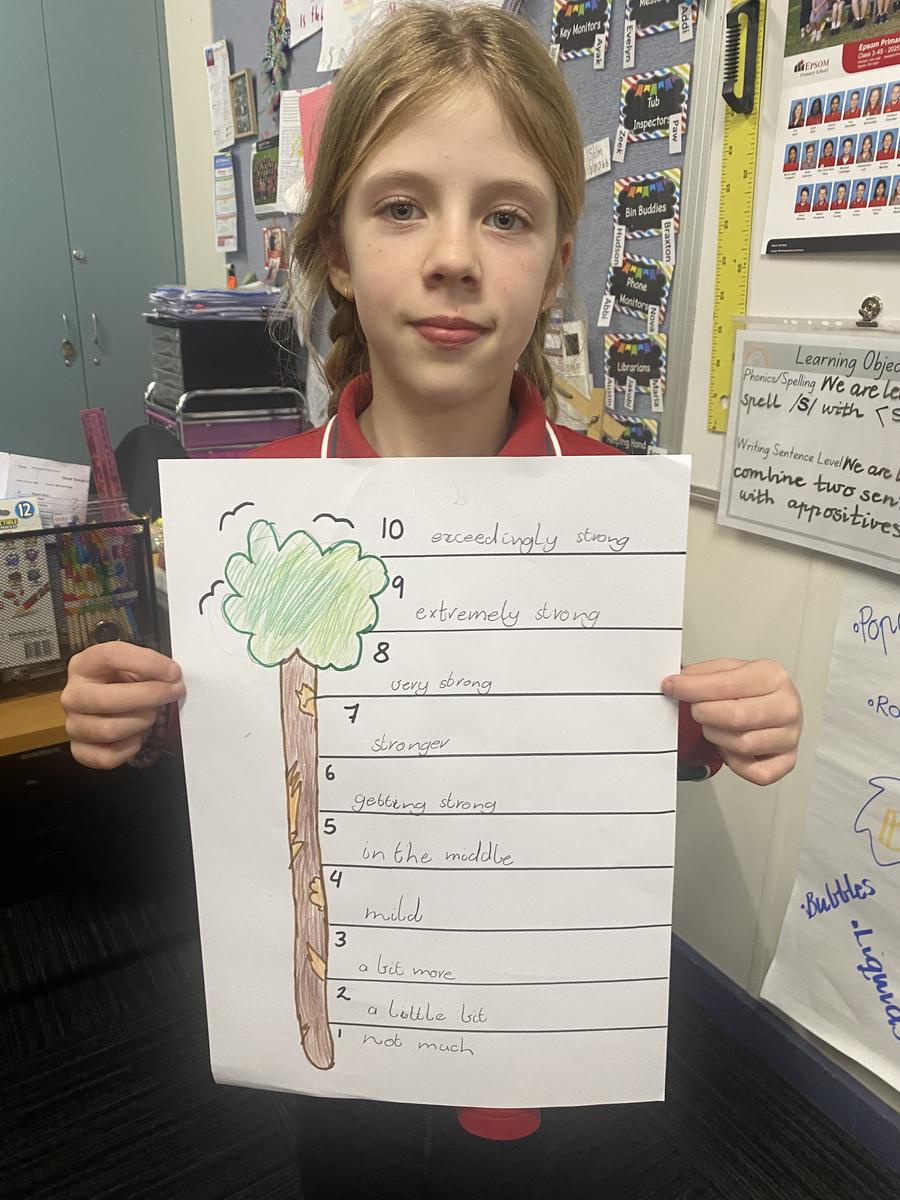 10 exceedingly strong
9 extremely strong
8 very strong
7 stronger
6 getting strong
5 in the middle
4 mild
3 a bit more
2 a little bit
1 not much
Key Monitors
Ayak
Evelyn
Addi
Tub Inspectors
Zeek
Paw
Bin Buddies
Hudson
Braxton
Phone Monitors
Abbi
Nova
Librarians
Maria
Helping Hand
EPSOM
Primary School
Epsom
Class 3-4S - 2025
Learning
Phonics/Spelling We are
spell /s/ with
Writing Sentence Level We are
combine two
with appositives
Bubbles
12